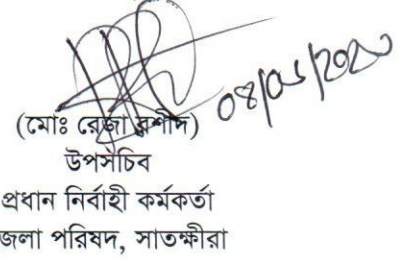 (মোঃ রেজা রশীদ)
উপসচিব
প্রধান নির্বাহী কর্মকর্তা
জেলা পরিষদ, সাতক্ষীরা